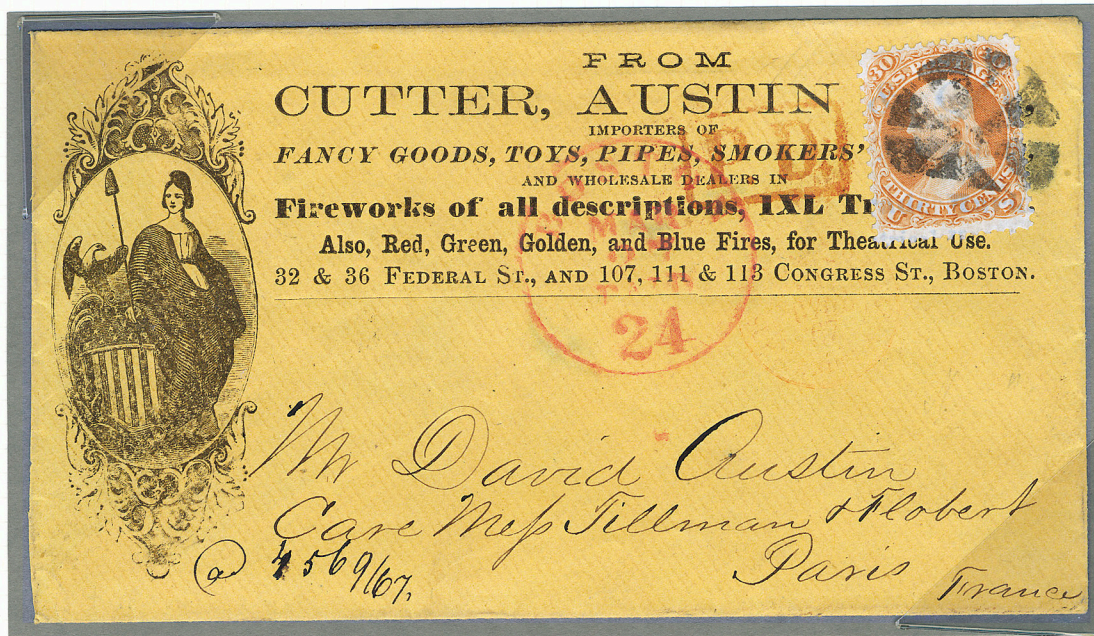 FROM
CUTTER, AUSTIN
IMPORTERS OF
FANCY GOODS, TOYS, PIPES, SMOKERS'
AND WHOLESALE DEALERS IN
Fireworks of all descriptions, IXL
Also, Red, Green, Golden, and Blue Fires, for Theatrical Use.
32 & 36 FEDERAL ST., AND 107, 111 & 113 CONGRESS ST., BOSTON.
30
U.S. POSTAGE
THIRTY CENTS
U S
P.D.
BOSTON
MAR
27
PAID
24
Mr David Austin
Care Mess Tillman & Flobert
Paris
France
4569/67.